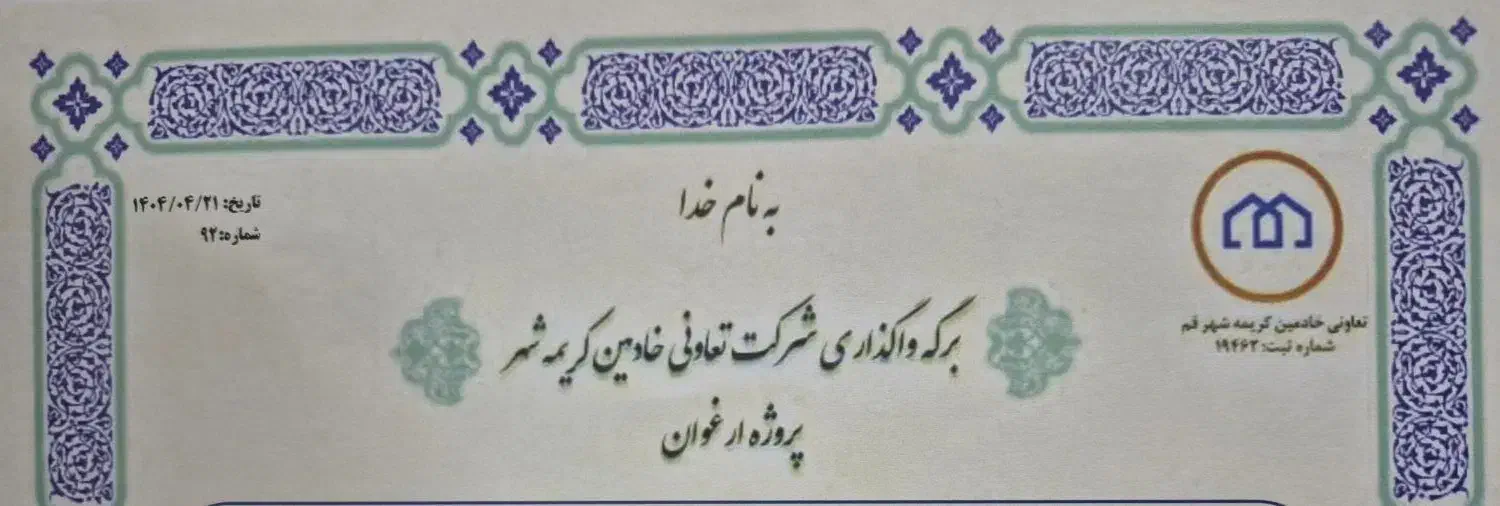 به نام خدا
تاریخ: ۱۴۰۴/۰۴/۲۱
شماره: ۹۲
تعاونی خادمین کریمه شهر قم
شماره ثبت: ۱۹۴۶۲
برگه واگذاری شرکت تعاونی خادمین کریمه شهر
پروژه ارغوان